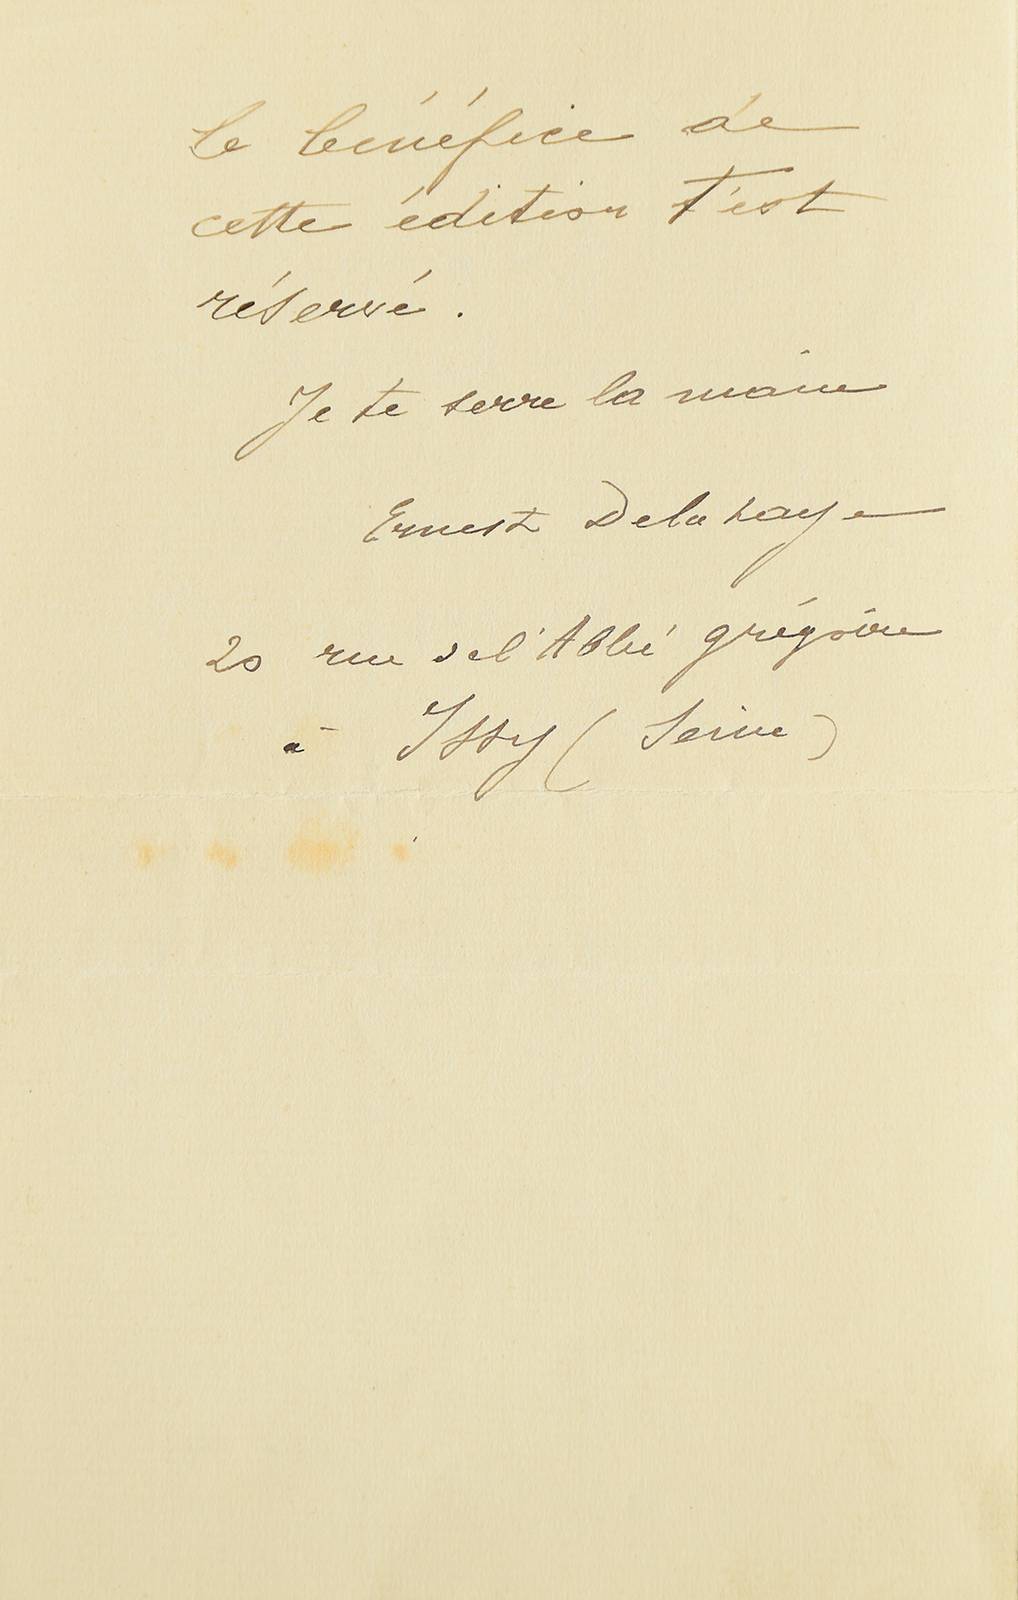 le bénéfice de
cette édition t'est
réservé.
Je te serre la main
Ernest Delahaye
20 rue de l'Abbé grégoire
à Issy (Seine)